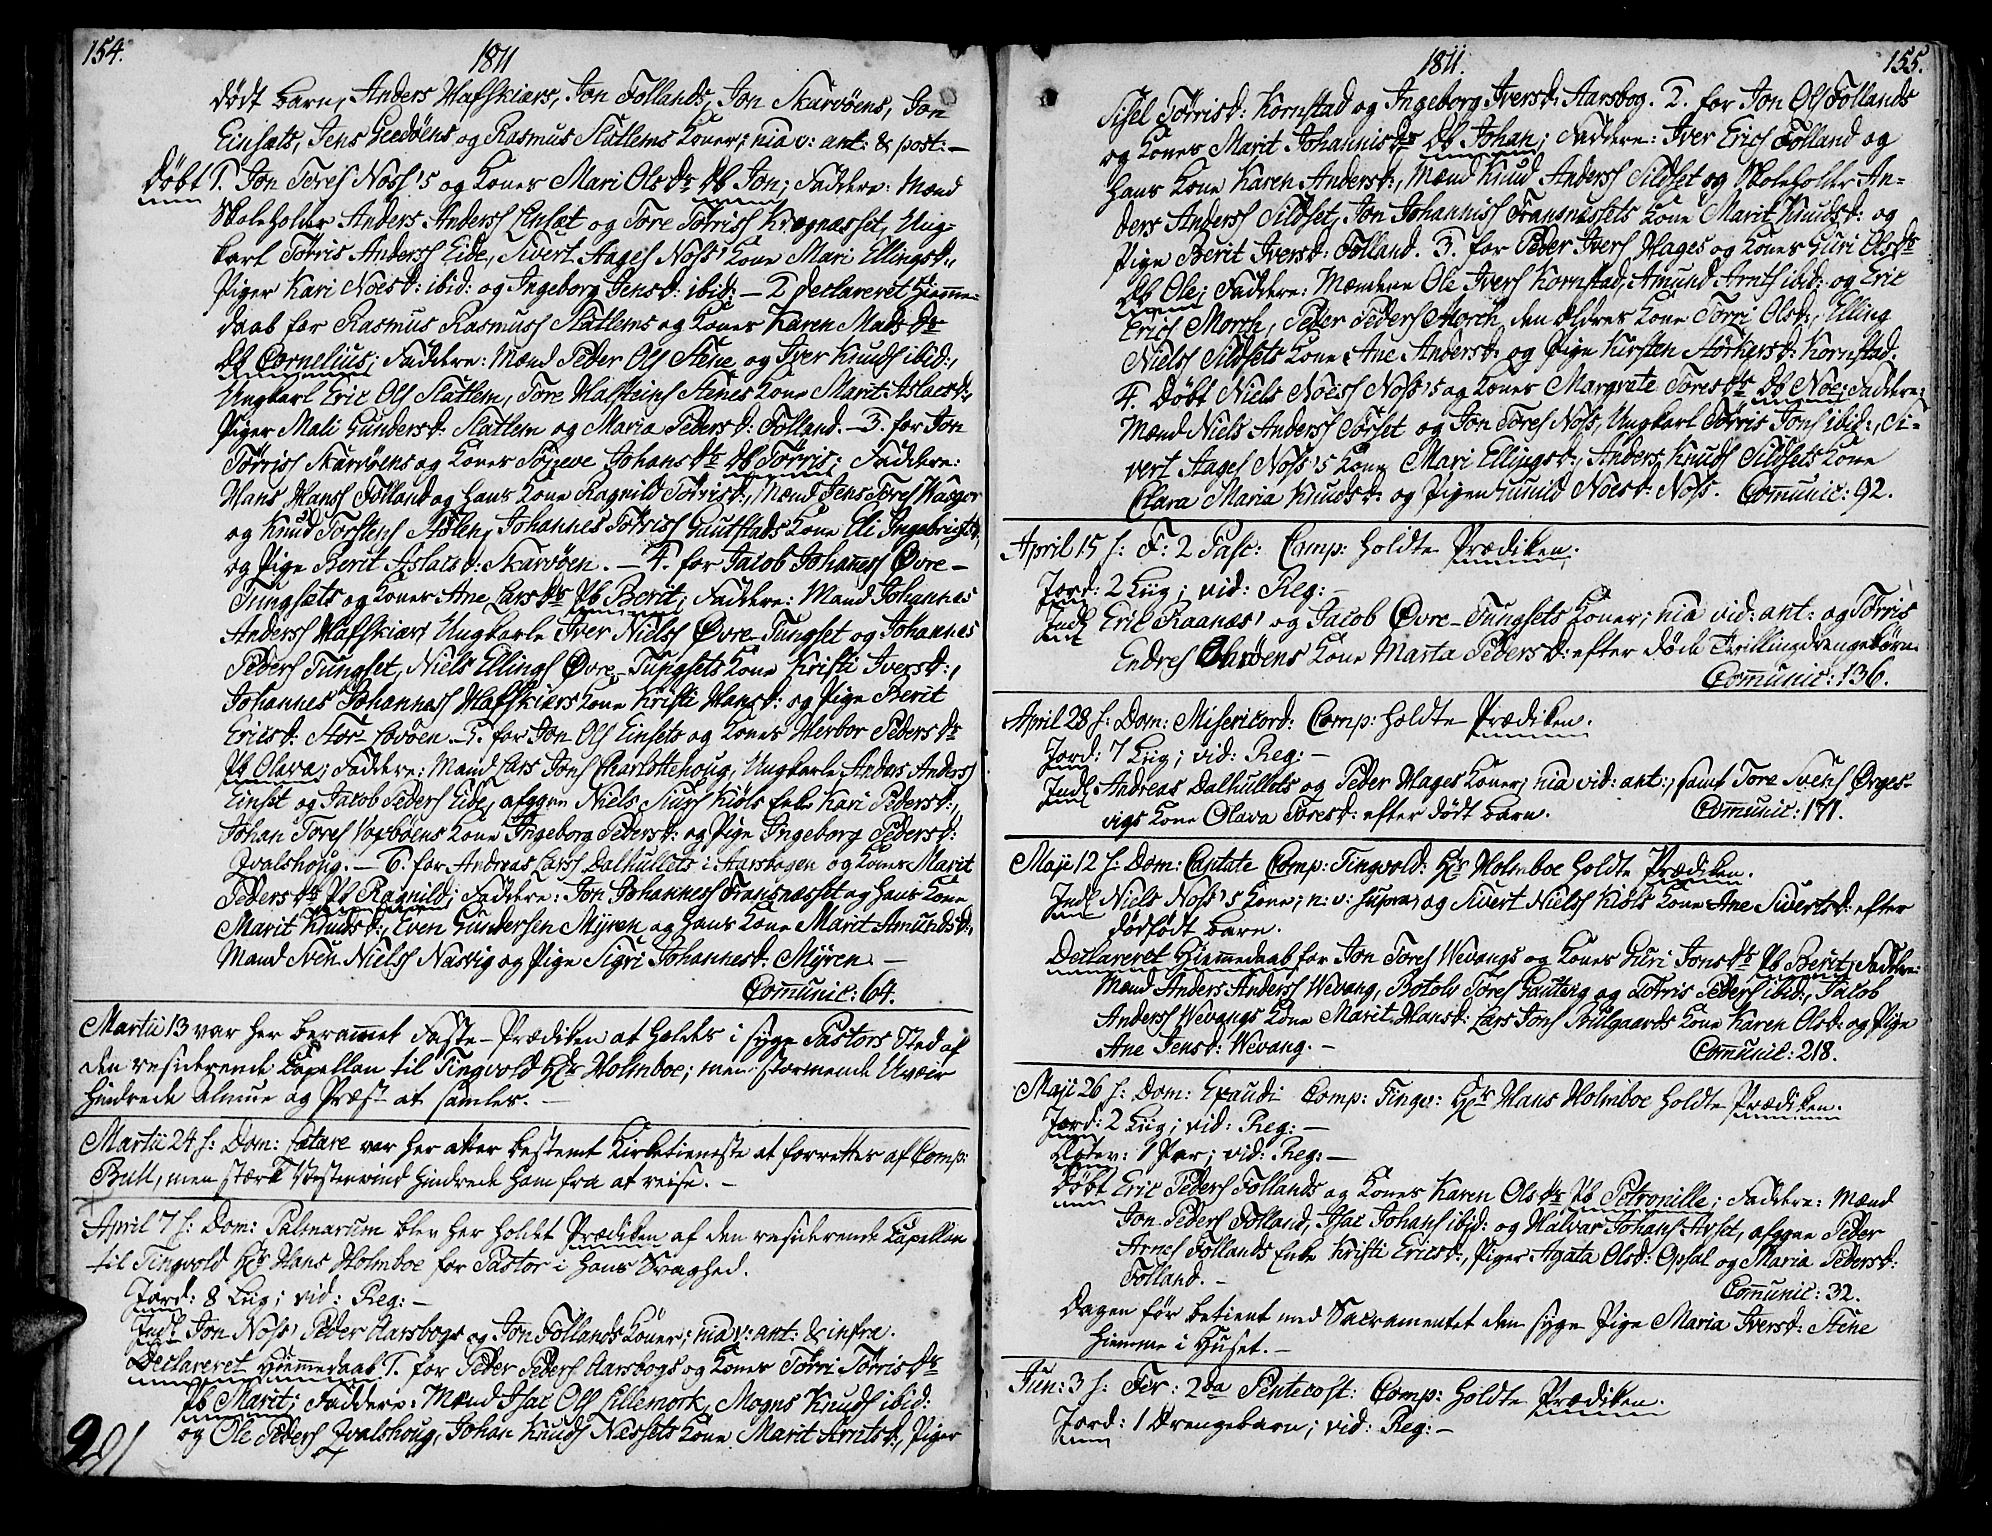 154.
1811
dødt barn, Anders Hafskiærs, Jon Follands, Jon Skarvøens, Jon
Einsæts, Jens Geedøens og Rasmus Slatlems Koner; nia v: ant: & post: —
Døbt 1. Jon Tores Noss's og Koner Mari Olsdr Db Jon; Faddere: Mænd
Skoleholder Anders Anderss Einsæt og Tore Tørriss Krognæsset, Ung-
karl Tørris Anderss Eide, Sivert Aages Noss' Kone Mari Ellingsd:,
Piger Kari Noesd: ibid: og Ingeborg Jensd: ibid: — 2 declareret Hiemme-
daab for Rasmus Rasmuss Slatlems og Koner Karen Madsdr
Db Cornelius; Faddere: Mænd Peder Ols Stene og Iver Knuds ibid:,
Ungkarl Eric Ols Slatlem, Tore Halsteins Stenes Kone Marit Aslacsd:,
Piger Mali Gundersd: Slatlem og Maria Pedersd: Folland. — 3. for Jon
Tørriss Skarvøens og Koner Johansdr Db Tørris; Faddere:
Hans Hanss Folland og hans Kone Ragnild Tørrisd:, Mænd Jens Tores
og Knud Torstens Stølen, Johannes Tørriss Kone Eli Ingebrigtsd:
og Pige Berit Aslacsd: Skarvøen. — 4. for Jacob Johannes Øvre-
Tungsets og Koner Ane Larsdr Pb Berit; Faddere: Mand Johannes
Anderss Hafskiær, Ungkarle Iver Niels Øvre-Tungset og Johannes
Peders Tungset, Niels Ellings Øvre-Tungsets Kone Kristi Iversd:,
Johannes Johanness Hafskiærs Kone Kristi Hansd: og Pige Berit
Ericsd: Stor- . 5. for Jon Ols Einsets og Koner Herbor Pedersdr
Pb Olava; Faddere: Mand Lars Jons Charlottehoug, Ungkarle Anders Anderss
Einset og Jacob Peders Eide, afggne Niels Kiøls Enke Kari Pedersd:,
Johan Tores Kone Ingeborg Pedersd: og Pige Ingeborg Pedersd:
Qvalshoug. — 6. for Andreas Larss Dalhullets i Aarsbogen og Koner Marit
Pedersdr Pb Ragnild; Faddere: Jon Johanness Fransnæsset og hans Kone
Marit Knudsd:, Even Gundersen Myren og hans Kone Marit Amundsd:,
Mand Sven Niels Nasvig og Pige Sigri Johannesd: Myren. —
Communic: 64.
Martii 13 var her berammet Faste-Prædiken at holdes i syge Pastors Sted af
den residerende Capellan til Tingvold Hr Holmboe; men stormende Uveir
hindrede Almue og Præst at samles. —
Martii 24 s: Dom: Lætare var her atter bestemt Kirketieneste at forrettes af Comp:
Bull, men stærk Vestenvind hindrede ham fra at reise. —
April 7 s: Dom: Palmarum blev her holdet Prædiken af den residerende Capellan
til Tingvold Hr Hans Holmboe for Pastor i hans Svaghed.
Jord: 8 Liig; vid: Reg: —
Indl Jon Noss' Peder Aarsbogs og Jon Follands Koner; nia v: ant: & infra.
Declareret Hiemmedaab 1. for Peder Peders Aarsbogs og Koner Tørri Tørrisdr
Pb Marit; Faddere: Mænd Isac Ols Lillemork, Mogns Knuds ibid:
og Ole Peders Qvalshoug, Johan Knuds Næssets Kone Marit Arntsd:, Piger
1811.
155.
Sissel Tørrisd: Kornstad og Ingeborg Iversd: Aarsbog. 2. for Jon Ols Follands
og Koner Marit Johannisdr Db Johan; Faddere: Iver Erics Folland og
hans Kone Karen Andersd:, Mænd Knud Anderss Sildset og Skoleholder An-
ders Anderss Sildset, Jon Johanniss Fransnæssets Kone Marit Knudsd: og
Pige Berit Iversd: Folland. 3. for Peder Ivers Hages og Koner Guri Olsdr
Db Ole; Faddere: Mændene Ole Ivers Kornstad, Amund Arnts ibid: og Eric
Erics Morch, Peder Peders Morch den ældres Kone Torri Olsd:, Elling
Niels Sildsets Kone Ane Andersd: og Pige Kirsten Størkersd: Kornstad.
4. Døbt Niels Noess Noss's og Koner Margrete Toresdr Db Noe; Faddere:
Mænd Niels Anderss Torset og Jon Tores Noss, Ungkarl Tørris Jons ibid:, Si-
vert Aages Noss's Kone Mari Ellingsd:, Anders Knuds Sildsets Kone
Clara Maria Knudsd: og Pigen Gunild Noesd: Noss. Communic: 92.
April 15 s: F: 2 Pasc: Comp: holdte Prædiken.
Jord: 2 Liig; vid: Reg: —
Indl Eric Raanæs' og Jacob Øvre-Tungsets Koner; nia vid: ant: og Tørris
Endres Kone Marta Pedersd: efter døde Trillingdrengebørn.
Communic: 136.
April 28 s: Dom: Misericord: Comp: holdte Prædiken.
Jord: 7 Liig; vid: Reg: —
Indl Andreas Dalhullets og Peder Hages Koner, nia vid: ant:, samt Tore Svens Ørges-
vigs Kone Olava Toresd: efter dødt barn.
Communic: 171.
Maji 12 s: Dom: Cantate Comp: Tingvold: Hr Holmboe holdte Prædiken.
Indl Niels Noss's Kone; n: v: supra, og Sivert Niels Kiøls Kone Ane Sivertsd: efter
dødfødt barn.
Declareret Hiemmedaab for Jon Tores Wevangs og Koner Guri Jonsdr Pb Berit; Faddere:
Mænd Anders Anderss Wevang, Botolv Tores og Tørris Peders ibid:, Jacob
Anderss Wevangs Kone Marit Hansd: Lars Jons Kone Karen Olsd: og Pige
Ane Jensd: Wevang. —
Communic: 218.
Maji 26 s: Dom: Exaudi Comp: Tingv: Hr Hans Holmboe holdte Prædiken.
Jord: 2 Liig; vid: Reg: —
Copulev: 1 Par; vid: Reg: —
Døbt Eric Peders Follands og Koner Karen Olsdr Pb Petronille; Faddere: Mænd
Jon Peders Folland, Isac Johans ibid: og Halvar Johans Avset, afggne Peder
Arnes Follands Enke Kristi Ericsd:, Piger Agata Olsd: Opsal og Maria Pedersd:
Folland. —
Communic: 32.
Dagen før betient med Sacramentet den syge Pige Maria Iversd: Stene
hiemme i Huset. —
Jun: 3 s: Fer: 2da Pentecost: Comp: holdte Prædiken.
Jord: 1 Drengebarn; vid: Reg: —